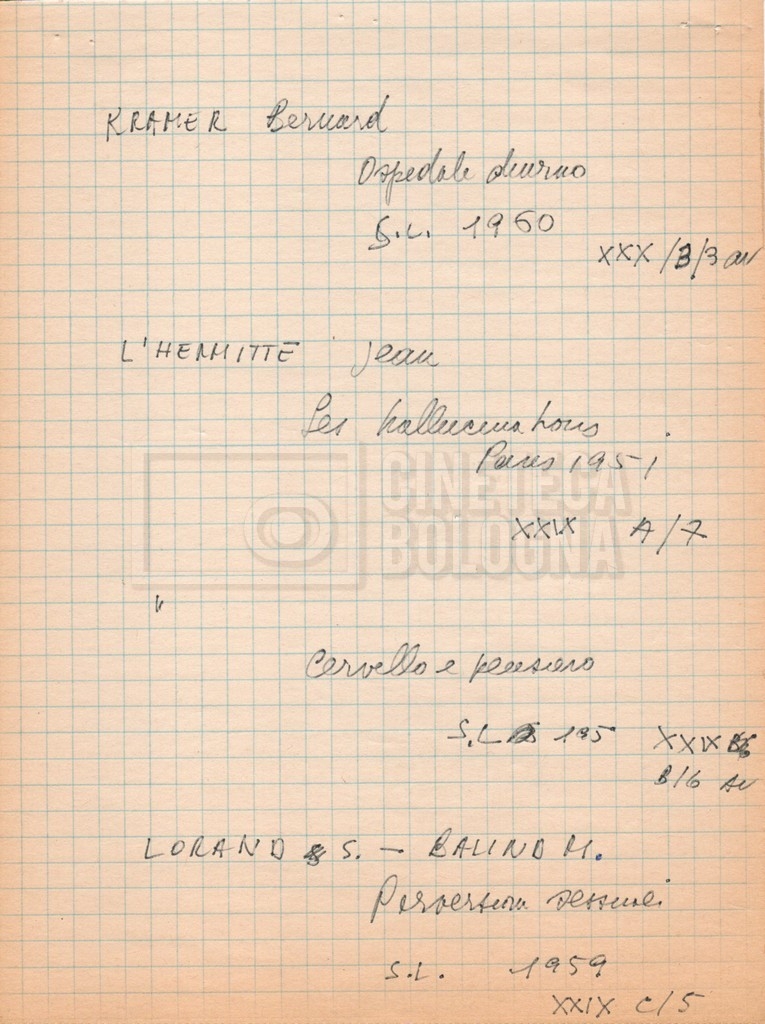 KRAMER Bernard
Ospedale diurno
S.L. 1960
XXX /B/3 av
L'HERMITTE Jean
Les hallucinations
Paris 1951
XXIX A/7
CINETECA
BOLOGNA
"
Cervello e pensiero
S.L. 195 XXIX
B/6 av
LORAND S. - BALIND M.
Perversioni sessuali
S.L. 1959
XXIX C/5